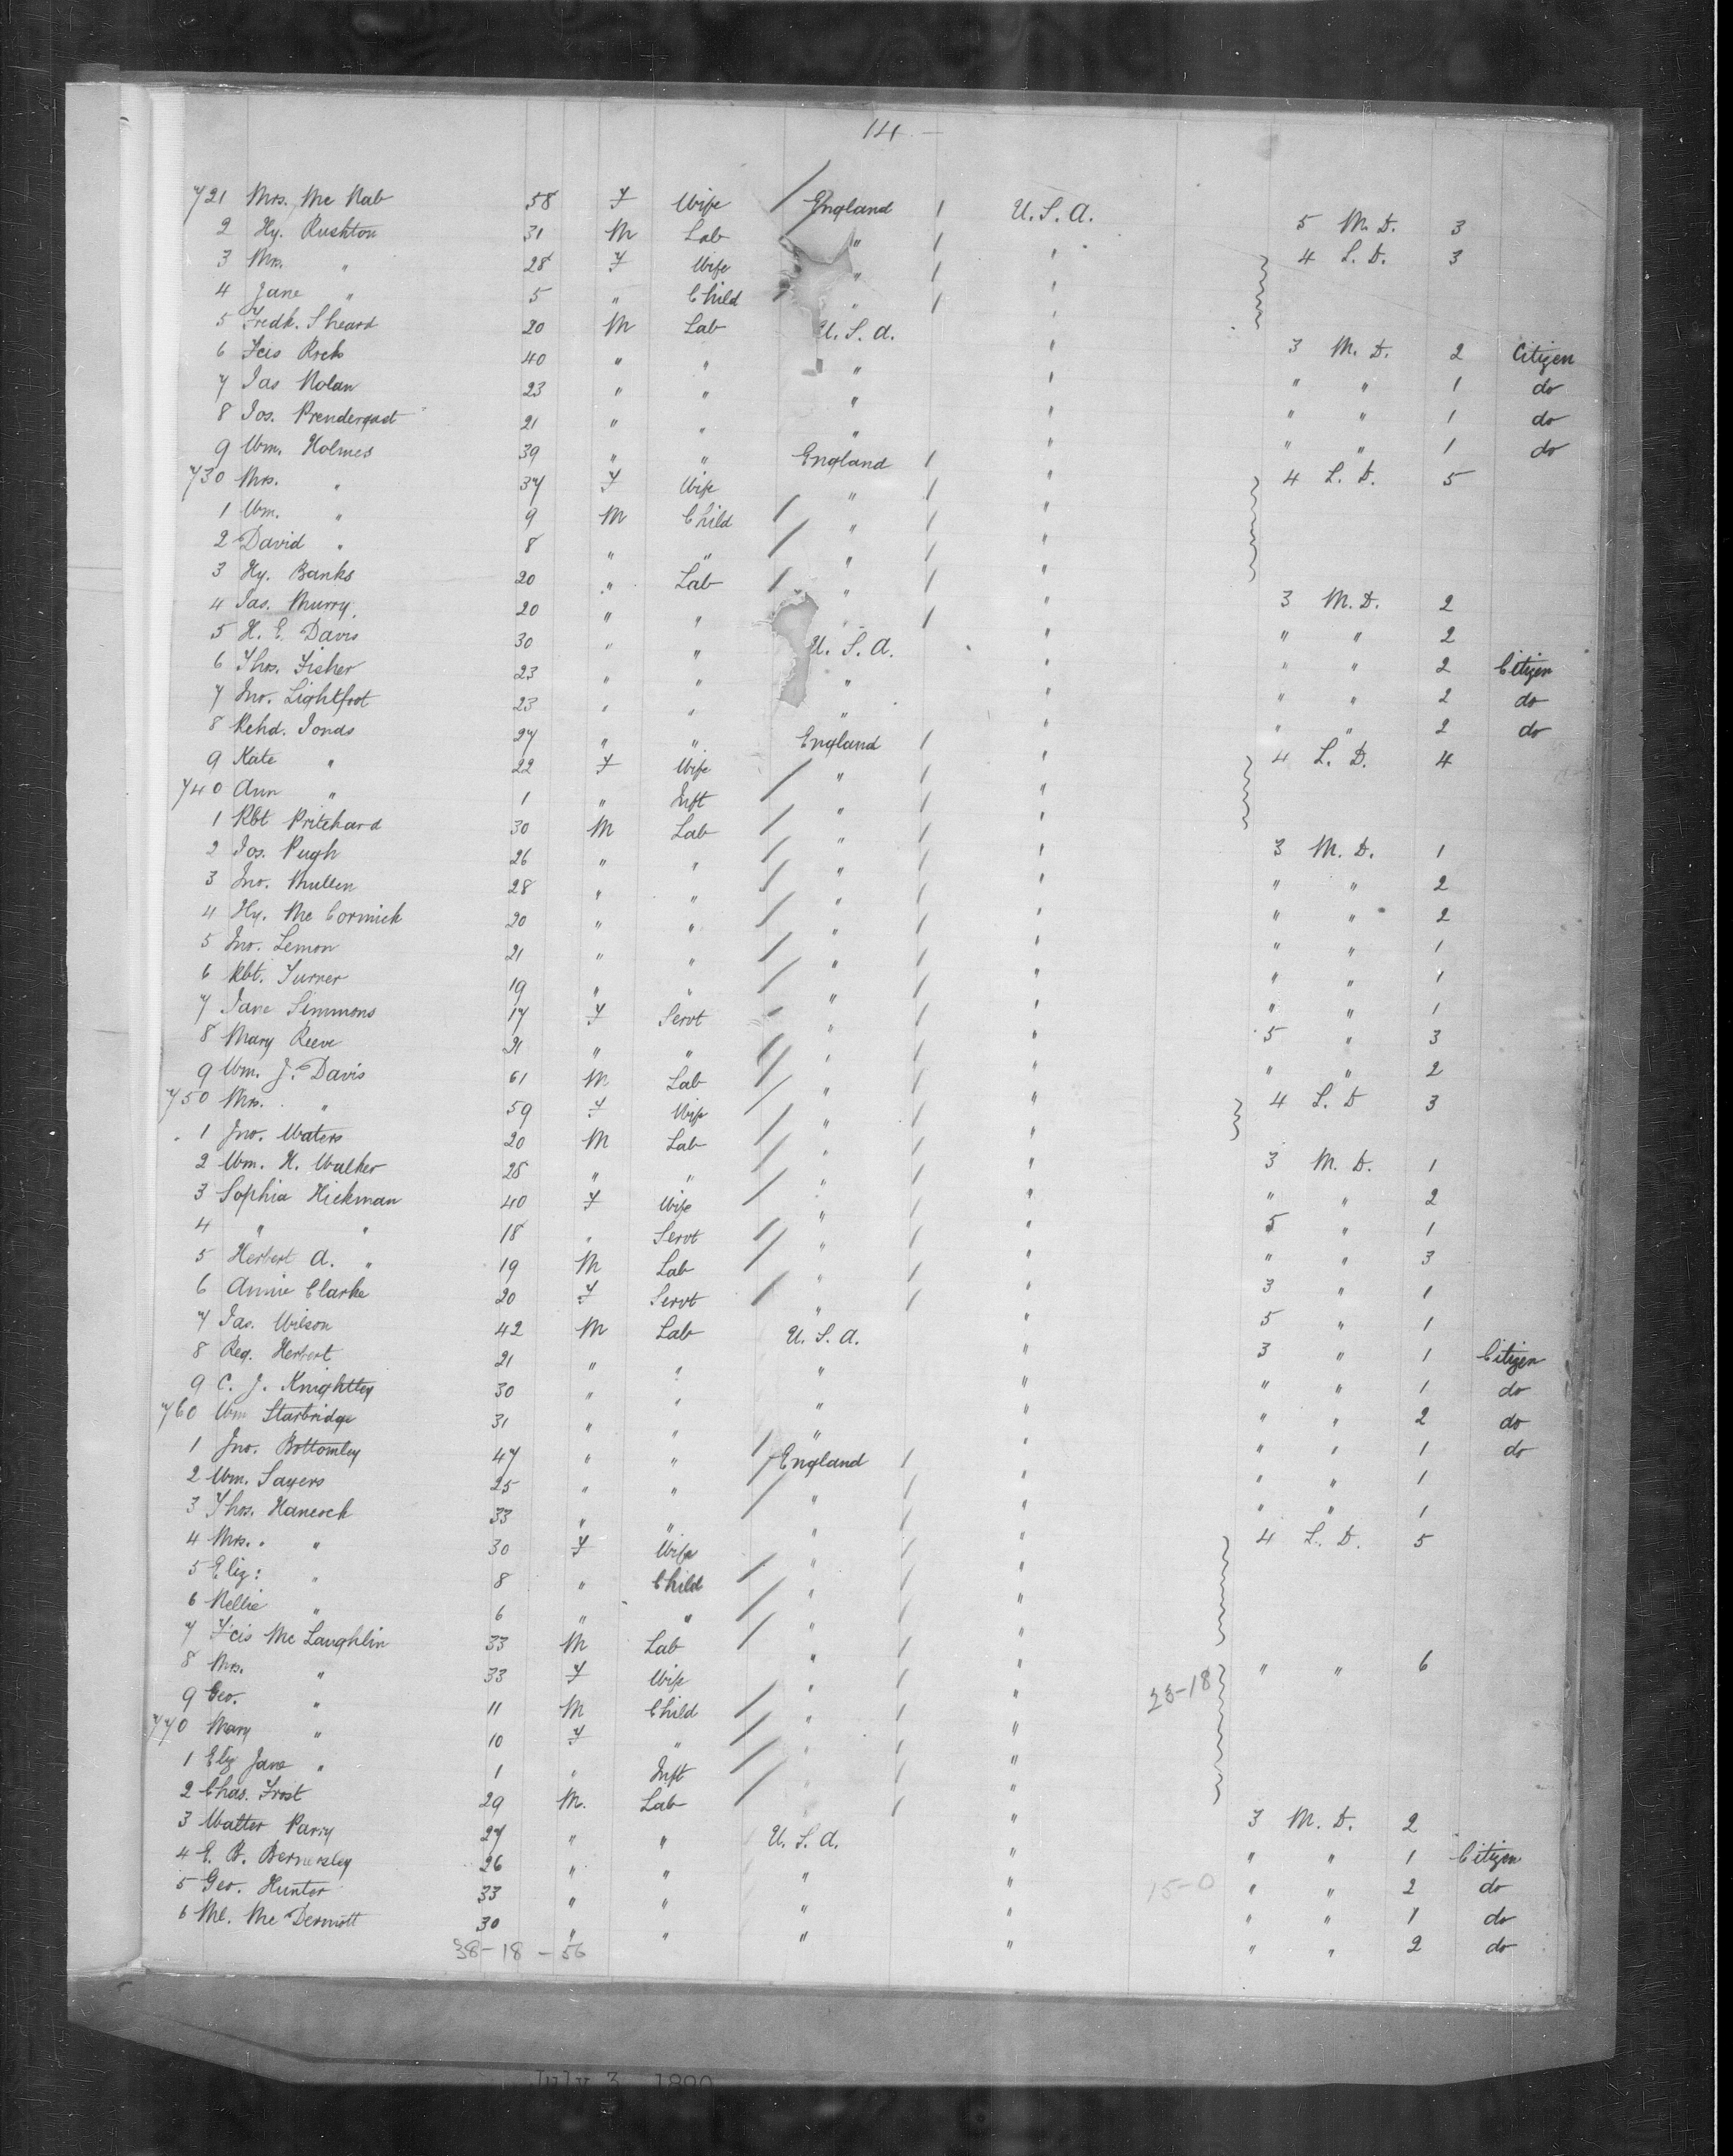 14 -
721 Mrs. Mc Nab 58 F Wife / England / U.S.A. 5 M.D. 3
2 Hy. Rushton 31 M Lab " / " 4 L.D. 3
3 Mrs. " 28 F Wife " / "
4 Jane " 5 " Child " / "
5 Fredk. Sheard 20 M Lab U.S.A. " 3 M.D. 2 Citizen
6 Fcis Rock 40 " " " " " " 1 do
7 Jas Nolan 23 " " " " " " 1 do
8 Jos. Prendergast 21 " " " " " " 1 do
9 Wm. Holmes 39 " " England / " 4 L.D. 5
730 Mrs. " 37 F Wife " / "
1 Wm. " 9 M Child / " / "
2 David " 8 " " / " / "
3 Hy. Banks 20 " Lab / " / " 3 M.D. 2
4 Jas. Murry. 20 " " " / " " " 2
5 H. E. Davis 30 " " U.S.A. " " " 2 Citizen
6 Thos. Fisher 23 " " " " " " 2 do
7 Jno. Lightfoot 23 " " " " " " 2 do
8 Rchd. Jonds 27 " " England / " 4 L.D. 4
9 Kate " 22 F Wife / " / "
740 Ann " 1 " Inft " / "
1 Rbt Pritchard 30 M Lab / " / " 3 M.D. 1
2 Jos. Pugh 26 " " / " / " " " 2
3 Jno. Mullen 28 " " / " / " " " 2
4 Hy. Mc Cormick 20 " " / " / " " " 1
5 Jno. Lemon 21 " " / " / " " " 1
6 Rbt. Turner 19 " " / " / " " " 1
7 Jane Simmons 17 F Servt " / " 5 " 3
8 Mary Reeve 21 " " / " / " " " 2
9 Wm. J. Davis 61 M Lab / " / " 4 L.D 3
750 Mrs. " 59 F Wife / " / "
1 Jno. Waters 20 M Lab / " / " 3 M.D. 1
2 Wm. H. Walker 28 " " / " / " " " 2
3 Sophia Hickman 40 F Wife / " / " 5 " 1
4 " " 18 " Servt / " / " " " 3
5 Herbert A. " 19 M Lab / " / " 3 " 1
6 Annie Clarke 20 F Servt / " / " 5 " 1
7 Jas. Wilson 42 M Lab U.S.A. " 3 " 1 Citizen
8 Reg. Herbert 21 " " " " " " 1 do
9 C. J. Knightley 30 " " " " " " 2 do
760 Wm Starbridge 31 " " " " " " 1 do
1 Jno. Bottomley 47 " " / England / " " " 1
2 Wm. Sayers 25 " " / " / " " " 1
3 Thos. Hancock 33 " " " / " 4 L.D. 5
4 Mrs. " 30 F Wife " / "
5 Eliz: " 8 " Child / " / "
6 Nellie " 6 " " / " / "
7 Fcis Mc Laughlin 33 M Lab / " / " " " 6
8 Mrs. " 33 F Wife " / " 23-18
9 Geo. " 11 M Child / " / "
770 Mary " 10 F " / " / "
1 Eliz Jane " 1 " Inft / " / "
2 Chas. Frost 29 M. Lab / " / " 3 M.D. 2
3 Walter Parry 27 " " U.S.A. " " " 1 Citizen
4 E. B. Bernersley 26 " " " " 15-0 " " 2 do
5 Geo. Hunter 33 " " " " " " 1 do
6 Ml. Mc Dermott 30 " " " " " " 2 do
38-18-56
July 3, 1890